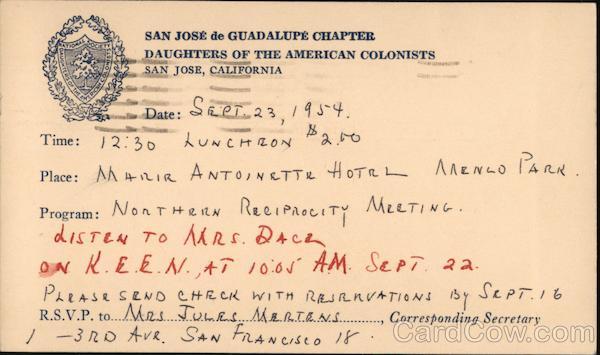 SAN JOSÉ de GUADALUPÉ CHAPTER
DAUGHTERS OF THE AMERICAN COLONISTS
SAN JOSE, CALIFORNIA
Date: SEPT. 23, 1954.
Time: 12:30 LUNCHEON $2.00
Place: MARIE ANTOINETTE HOTEL MENLO PARK.
Program: NORTHERN RECIPROCITY MEETING.
LISTEN TO MRS. DACE
ON K.E.E.N., AT 10:05 AM. SEPT. 22.
PLEASE SEND CHECK WITH RESERVATIONS BY SEPT. 16
R.S.V.P. to MRS JULES MERTENS, Corresponding Secretary
1 – 3RD AVE. SAN FRANCISCO 18.
CardCow.com